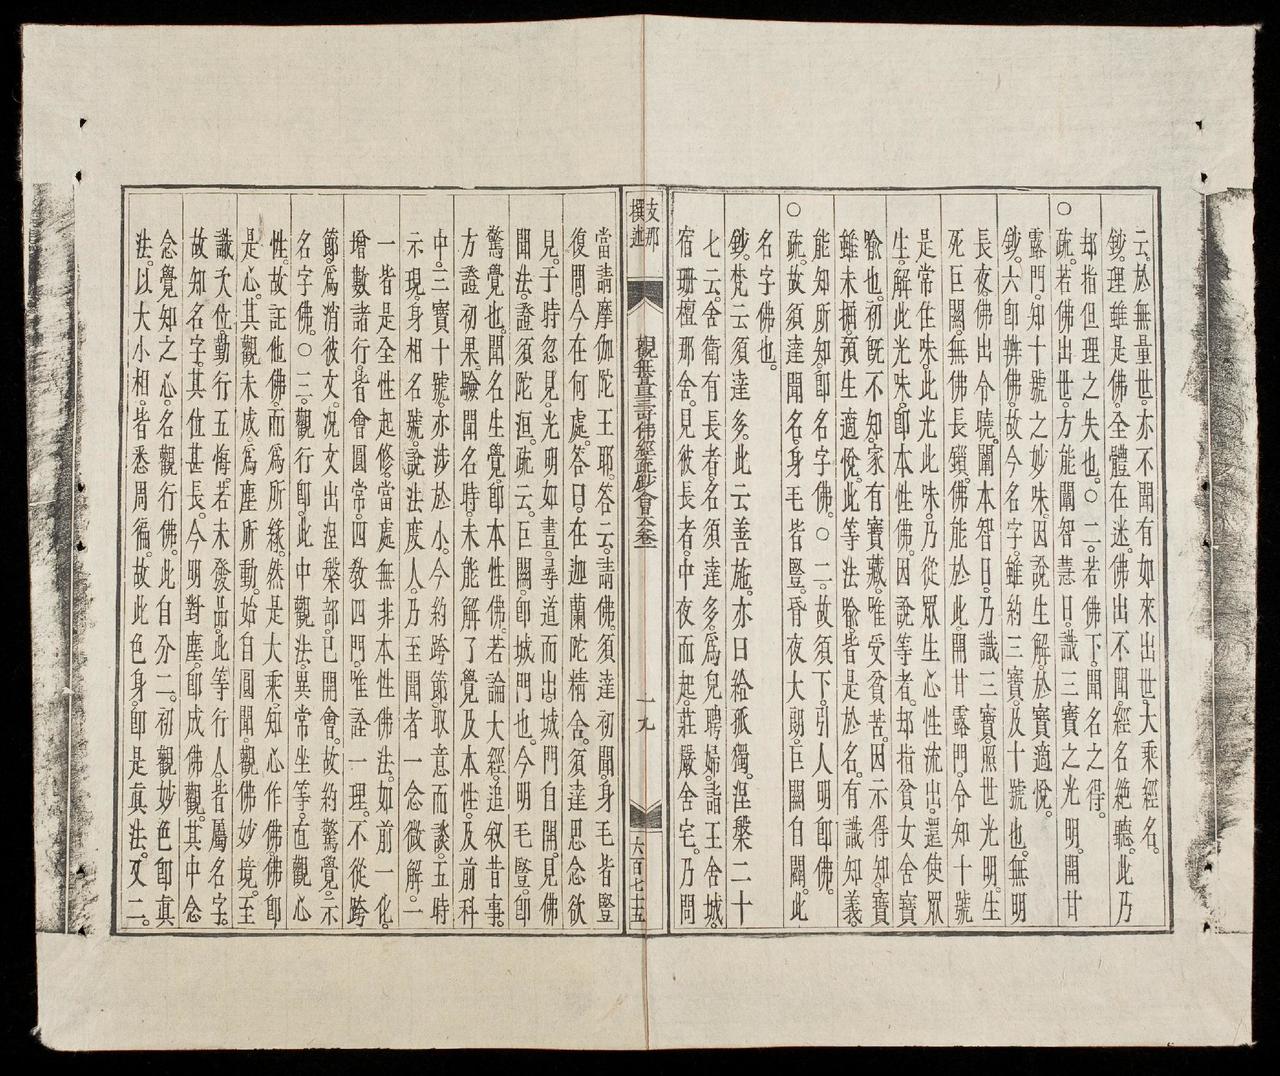 云。於無量世。亦不聞有如來出世。大乘經名。
鈔。理雖是佛。全體在迷。佛出不聞。經名絕聽。此乃
却指但理之失也。○二。若佛下。聞名之得。
○疏。若佛出世。方能闡智慧日。識三寶之光明。開甘
露門。知十號之妙味。因說生解。於寶適悅。
鈔。六即辨佛。故今名字。雖約三寶。及十號也。無明
長夜。佛出令曉。闡本智日。乃識三寶。照世光明。生
死巨關。無佛長鎖。佛能於此。開甘露門。令知十號
是常住味。此光此味。乃從眾生心性流出。還使眾
生。解此光味。即本性佛。因說等者。却指貧女舍寶
喻也。初既不知。家有寶藏。唯受貧苦。因示得知。寶
雖未掘。預生適悅。此等法喻。皆是於名。有識知義。
能知所知。即名字佛。○二。故須下。引人明即佛。
○疏。故須達聞名。身毛皆豎。昏夜大朗。巨關自闢。此
名字佛也。
鈔。梵云須達多。此云善施。亦曰給孤獨。涅槃二十
七云。舍衛有長者。名須達多。為兒聘婦。詣王舍城。
宿珊檀那舍。見彼長者。中夜而起。莊嚴舍宅。乃問
支那
撰述
觀無量壽佛經疏鈔會本卷一
一九
六百七十五
當請摩伽陀王耶。答云。請佛。須達初聞。身毛皆豎
復問。今在何處。答曰。在迦蘭陀精舍。須達思念欲
見。于時忽見光明如晝。尋道而出。城門自開。見佛
聞法。證須陀洹。疏云。巨關。即城門也。今明毛豎。即
驚覺也。聞名生覺。即本性佛。若論大經。追敘昔事。
方證初果。驗聞名時。未能解了覺及本性。及前科
中。三寶十號。亦涉於小。今約跨節。取意而談。五時
示現。身相名號。說法度人。乃至聞者一念微解。一
一皆是全性起修。當處無非本性佛法。如前一化。
增數諸行。皆會圓常四教四門。唯詮一理。不從跨
節。為消彼文。況文出涅槃部。已開會。故約驚覺。示
名字佛。○三。觀行即。此中觀法。異常坐等。直觀心
性。故託他佛而為所緣。然是大乘。知心作佛。佛即
是心。其觀未成。為塵所動。始自圓聞。觀佛妙境。至
識次位。勤行五悔。若未發品。此等行人。皆屬名字。
故知名字。其位甚長。今明對塵。即成佛觀。其中念
念覺知之心。名觀行佛。此自分二。初觀妙色即真
法。以大小相。皆悉周徧。故此色身。即是真法。又二。